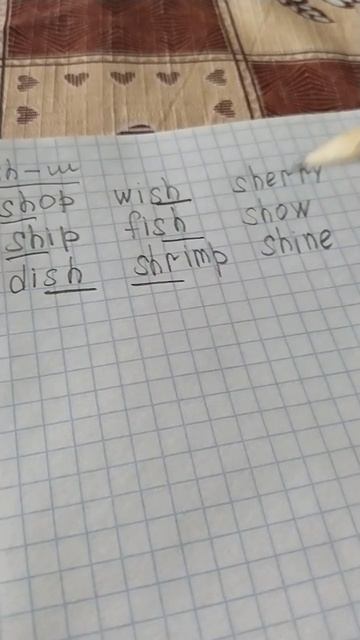 sh-ш
shop wish sherry
ship fish show
dish shrimp shine